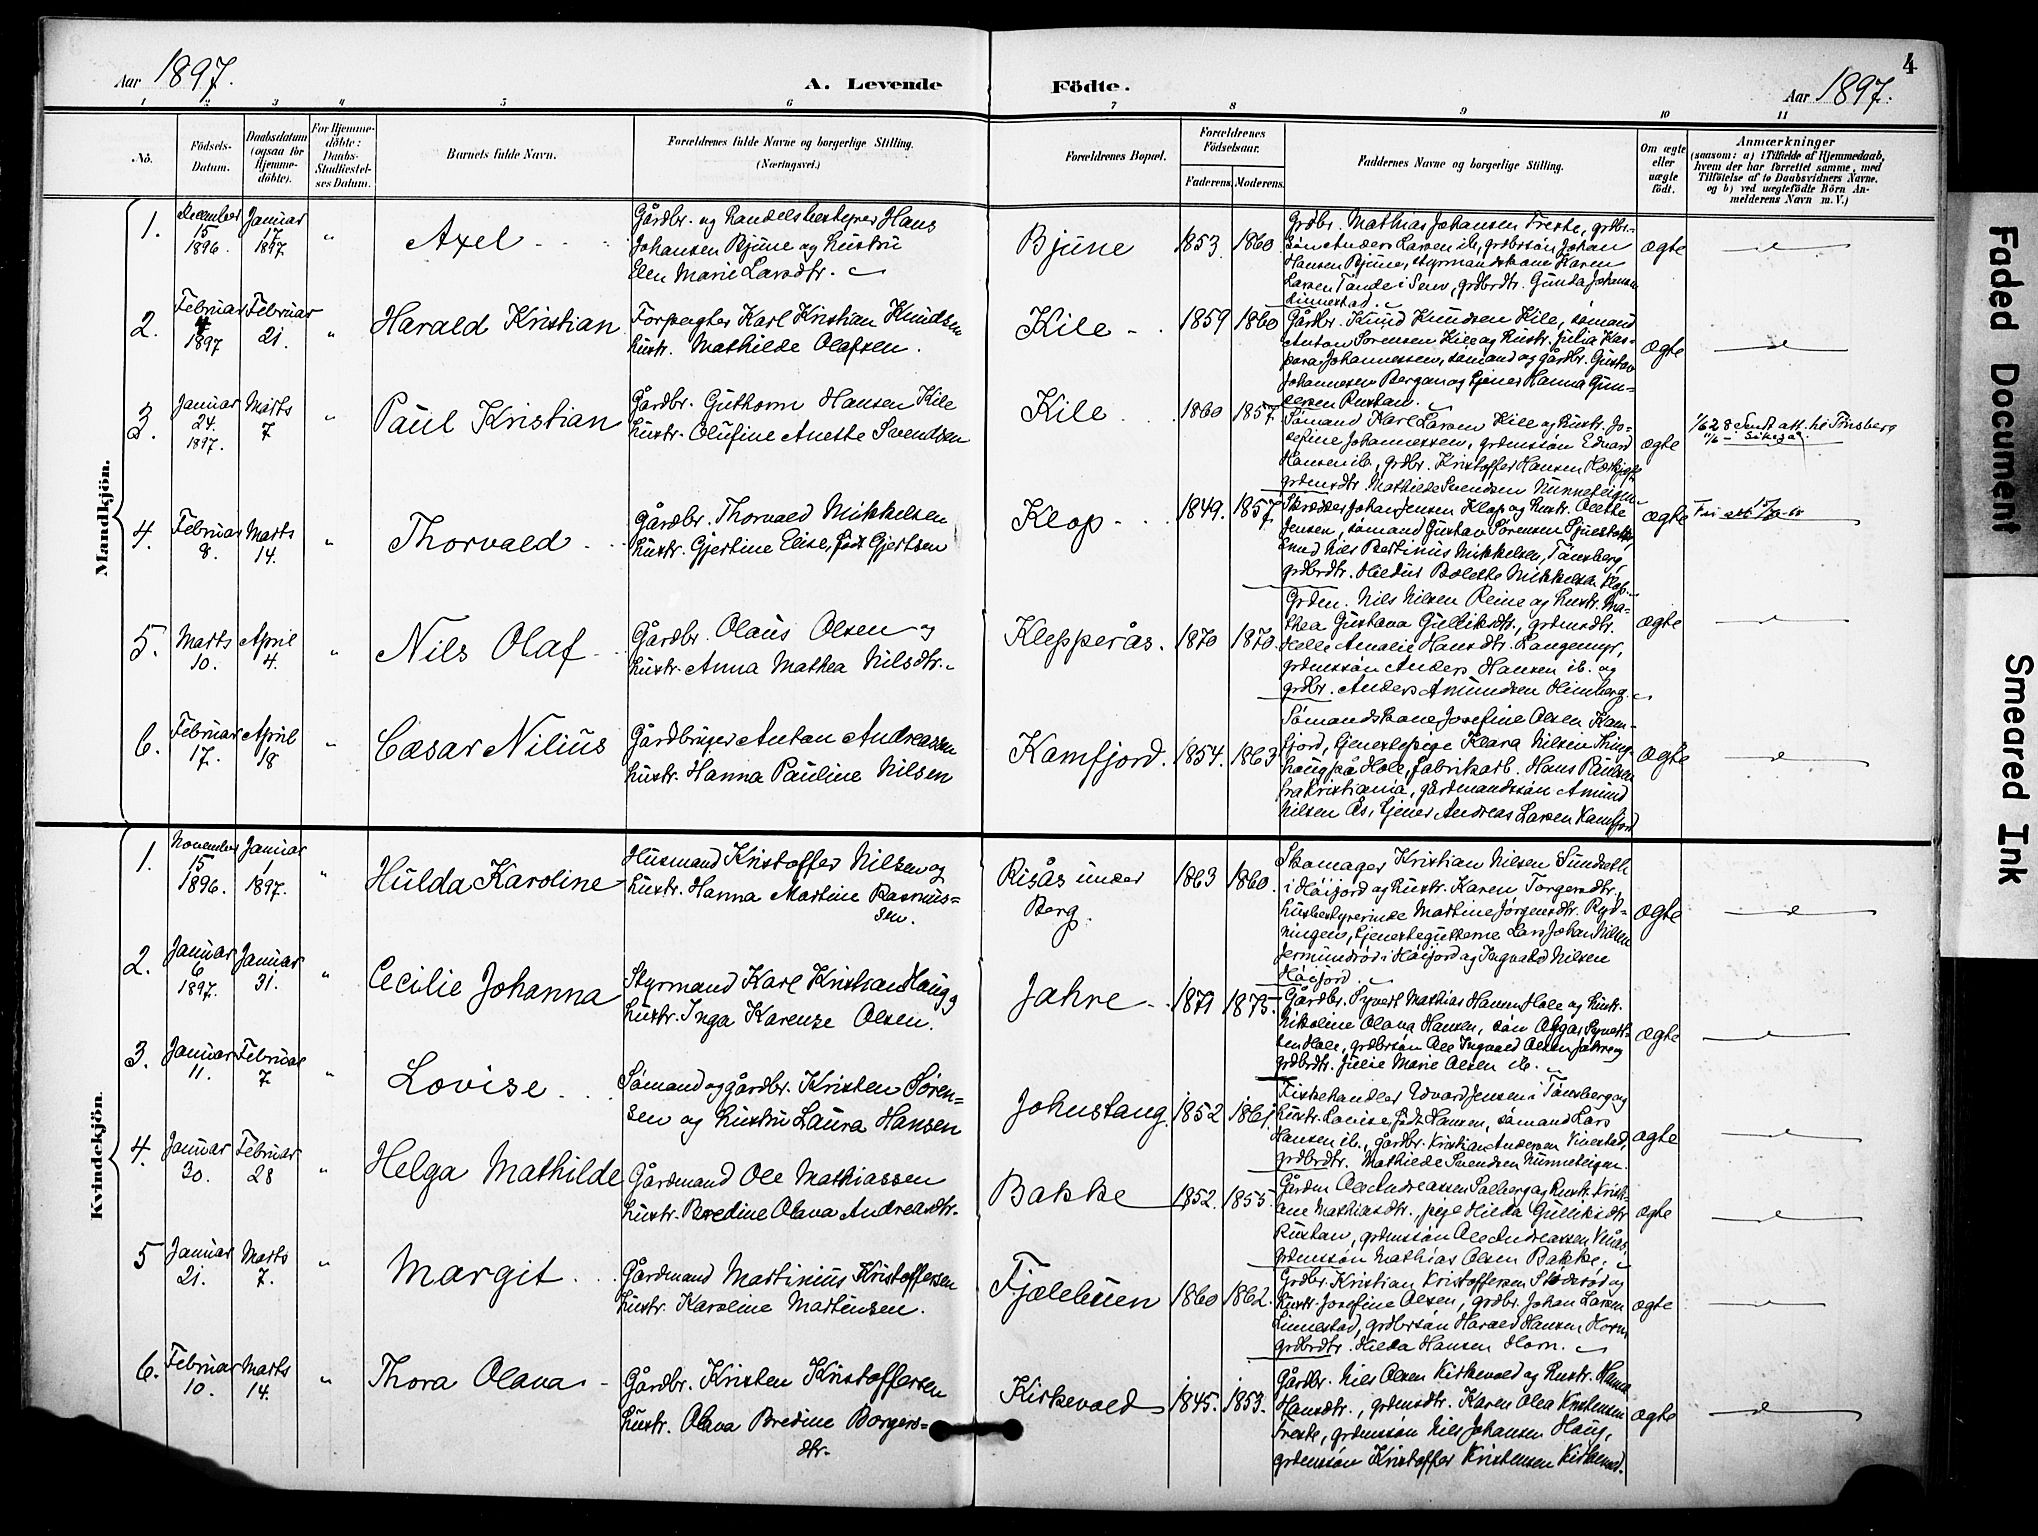 Aar 1897.
A. Levende Födte.
4
Aar 1897.
1 2 3 4 5 6 7 8 9 10 11
No.
Födsels-Datum.
Daabsdatum (ogsaa for Hjemme-döbte).
For Hjemme-döbte: Daabs-Stadfæstel-ses Datum.
Barnets fulde Navn.
Forældrenes fulde Navne og borgerlige Stilling. (Næringsvei.)
Forældrenes Bopæl.
Forældrenes Födselsaar.
Faderens. Moderens.
Faddernes Navne og borgerlige Stilling.
Om ægte eller uægte født.
Anmærkninger
(saasom: a) i Tilfælde af Hjemmedaab,
hvem der har forrettet samme, med
Tilföielse af to Daabsvidners Navne,
og b) ved uægtefödte Börn An-
melderens Navn m. V.)
Mandkjön.
1. December 15 1896. Januar 17 1897 " Axel
Gårdbr. og Handelsbestyrer Hans
Johansen Bjune og hustru
Elen Marie Larsdtr.
Bjune 1853. 1860
Grdbr. Mathias Johansen Freste, grdbr-
søn Anders Larsen ib., grdbrsøn Johan
Hansen Bjune, styrmandskone Karen
Larsen Tande i Sem, grdbrdtr. Gunda Johansen
Linnestad.
Ægte
2. Februar 4 1897 Februar 21. " Harald Kristian
Forpagter Karl Kristian Knudsen
hustr. Mathilde Olafsen.
Kile 1859 1860
Gårdbr. Knud Knudsen Kile, sømand
Anton Sørensen Kile og hustr. Julia Kas-
para Johannessen, sømand og gårdbr. Gustav
Johannesen Bergan og tjener Hanna Gun-
dersen Rustan.
Ægte
3. Januar 24. 1897. Marts 7 " Paul Kristian
Gårdbr. Guthorm Hansen Kile
hustr. Olufine Anette Svendsen
Kile 1860 1857.
Sømand Karl Larsen Kile og hustr. Jo-
sefine Johannessen, grdmssøn Edvard
Hansen ib., grdbr. Kristoffer Hansen
grdmsdtr. Mathilde Svendsen Nunneteigen
Ægte
1/6 28 Sendt att. til Tønsberg
4. Februar 8. Marts 14. " Thorvald
Gårdbr. Thorvald Mikkelsen
hustr. Gjertine Elise, født Gjertsen
Klop 1849. 1857
Skrædder Johan Jensen Klop og hustr. Olette
Jensen, sømand Gustav Sørensen
Nils Bertinus Mikkelsen, Tønsberg,
grdbrdtr. Bolette Mikkelsen Klop.
Ægte
Fri att.
5. Marts 10. April 4. " Nils Olaf
Gårdbr. Olaus Olsen og
hustr. Anna Mathea Nilsdtr.
Klepperås. 1870 1870.
Grdm. Nils Nilsen Reine og hustr. Ma-
thea Gustava Gulliksdtr., grdmsdtr.
Helle Amalie Hansdtr. Langemyr,
grdmssøn Anders Hansen ib. og
grdbr. Anders Amundsen Himberg.
Ægte
6. Februar 17. April 18 " Cæsar Nilius
Gårdbruger Anton Andreassen
hustr. Hanna Pauline Nilsen
Kamfjord. 1854. 1863
Sømandskone Josefine Olsen Kam-
fjord, tjenestepige Klara Nilsen Thing-
houg på Hole, fabrikarb. Hans Paulsen
fra Kristiania, gårdmandssøn Amund
Nilsen Ås, tjener Andreas Larsen Kamfjord
Ægte
Kvindekjön.
1. November 15 1896. Januar 1 1897. " Hulda Karoline
Husmand Kristoffer Nilsen og
hustr. Hanna Martine Rasmus-
sen.
Risås under
Berg. 1863 1860.
Skomager Kristian Nilsen Sundseth
i Høijord og hustr. Karen Torgersdtr.,
husbestyrerinde Martine Jørgensdtr. Ryd-
ningen, tjenestegutterne Lars Johan Nilsen
Jermundrød i Høijord og Ingvald Nilsen
Høijord
Ægte
2. Januar 6 1897. Januar 31. " Cecilie Johanna
Styrmand Karl Kristian Haug og
hustr. Inga Karense Olsen.
Jahre 1871 1875.
Gårdbr. Syvert Mathias Hansen Hole og hustr.
Nikoline Olava Hansen, søn Asgar Syvert-
sen Hole, grdbrsøn Ole Ingvald Olsen Jahre og
grdbrdtr. Julie Marie Olsen ib.
Ægte
3. Januar 11. Februar 7 " Lovise
Sømand og gårdbr. Kristen Søren-
sen og hustru Laura Hansen
Johnstang. 1852 1861.
Fiskehandler Edvard Jensen i Tønsberg og
hustr. Lovise født Hansen, sømand Lars
Hansen ib., gårdbr. Kristian Andersen Vivestad,
grdbrdtr. Mathilde Svendsen Nunneteigen.
Ægte
4. Januar 30. Februar 28 " Helga Mathilde
Gårdmand Ole Mathiassen
hustr. Bredine Olava Andreasdtr.
Bakke 1852. 1855.
Gårdm. Ole Andreassen Solberg og hustr. Krist-
ane Mathiasdtr., pige Hilda Gulliksdtr
Rustan, grdmssøn Ole Andreassen Virås,
grdmssøn Mathias Olsen Bakke.
Ægte
5 Januar 21. Marts 7. " Margit
Gårdmand Martinius Kristoffersen
hustr. Karoline Martensen.
Fjælebuen 1860 1862.
Grdbr. Kristian Kristoffersen Stødsrød og
hustr. Josefine Olsen, grdbr. Johan Larsen
Linnestad, grdbrsøn Harald Hansen Horn
grdbrdtr. Hilda Hansen Horn.
Ægte
6. Februar 10. Marts 14. " Thora Olava
Gårdbr. Kristen Kristoffersen
hustr. Olava Bredine Borgers-
dtr.
Kirkevold 1845. 1853.
Gårdbr. Nils Olsen Kirkevold og hustr. Hanna
Hansdtr., grdmsdtr. Karen Olea Kristensen
Freste, grdmssøn Nils Johansen Haug,
grdmssøn Kristoffer Kristensen Kirkevold.
Ægte
Faded Document
Smeared Ink